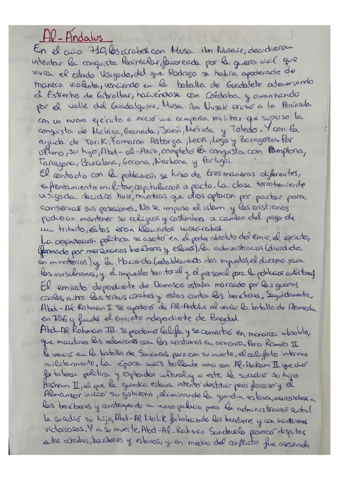 Al-Ándalus
En el año 710, los árabes con Musa ibn Nusair, decidieron
intentar la conquista Peninsular, favorecida por la guerra civil que
vivía el estado Visigodo, del que Rodrigo se había apoderado de
manera violenta, venciendo en la batalla de Guadalete atravesando
el Estrecho de Gibraltar, haciéndose con Córdoba, y avanzando
por el valle del Guadalquivir, Musa ibn Nusair cruzó a la Península
con un nuevo ejército e inició una campaña militar que supuso la
conquista de Málaga, Granada, Jaén, Mérida, y Toledo. Y con la
ayuda de Tarik tomaron Astorga, León, Lugo y Zaragoza. Por
último, su hijo, Abd-al-Aziz, completó la conquista con Pamplona,
Tarragona, Barcelona, Gerona, Narbona y Portugal.
El contacto con la población se hizo de tres maneras diferentes,
enfrentamiento militar, capitulación o pacto. La clase terrateniente
visigoda decidió huir, mientras que otros optaron por pactar para
conservar sus posesiones. No se impuso el islam y los cristianos
podían mantener su religión y costumbres a cambio del pago
de un tributo, éstos eran llamados mozárabes.
La organización política se asentó en el poder absoluto del emir, el ejército,
(formado por mercenarios bereberes y eslavos), la administración (dividida
en ministerios) y la Hacienda (estableciendo dos impuestos, el diezmo para
los musulmanes, y el impuesto territorial y el personal para los
El emirato dependiente de Damasco estaba marcado por las guerras
civiles entre las tribus árabes y éstas contra los bereberes, seguidamente,
Abd-Al Rahman I se apoderó de Al-Ándalus al vencer la batalla de Alameda
en 756 y fundó el emirato independiente de Bagdad.
Abd-Al Rahman III se proclamó Califa, y se convirtió en monarca absoluto,
que mantuvo las relaciones con los cristianos en armonía. Pero Ramiro II
le venció en la batalla de Simancas pero con su muerte, el califato intervino
militarmente. La época más brillante vino con Al-Hakam II que dio
fortaleza política y esplendor cultural, y a éste le sucedió su hijo
Hisham II, al que la guardia eslava intentó destituir pero fracasó y el
Almanzor inició su gobierno, eliminando la guardia eslava,
los bereberes y construyendo un nuevo palacio para la administración central.
Le sucedió su hijo, Abd-Al Malik fortaleciendo los bereberes y con incursiones
victoriosas. Y a su muerte, Abd-Al-Rahman Sanchuelo provocó disputas
entre árabes, bereberes y eslavos, y en medio del conflicto fue asesinado